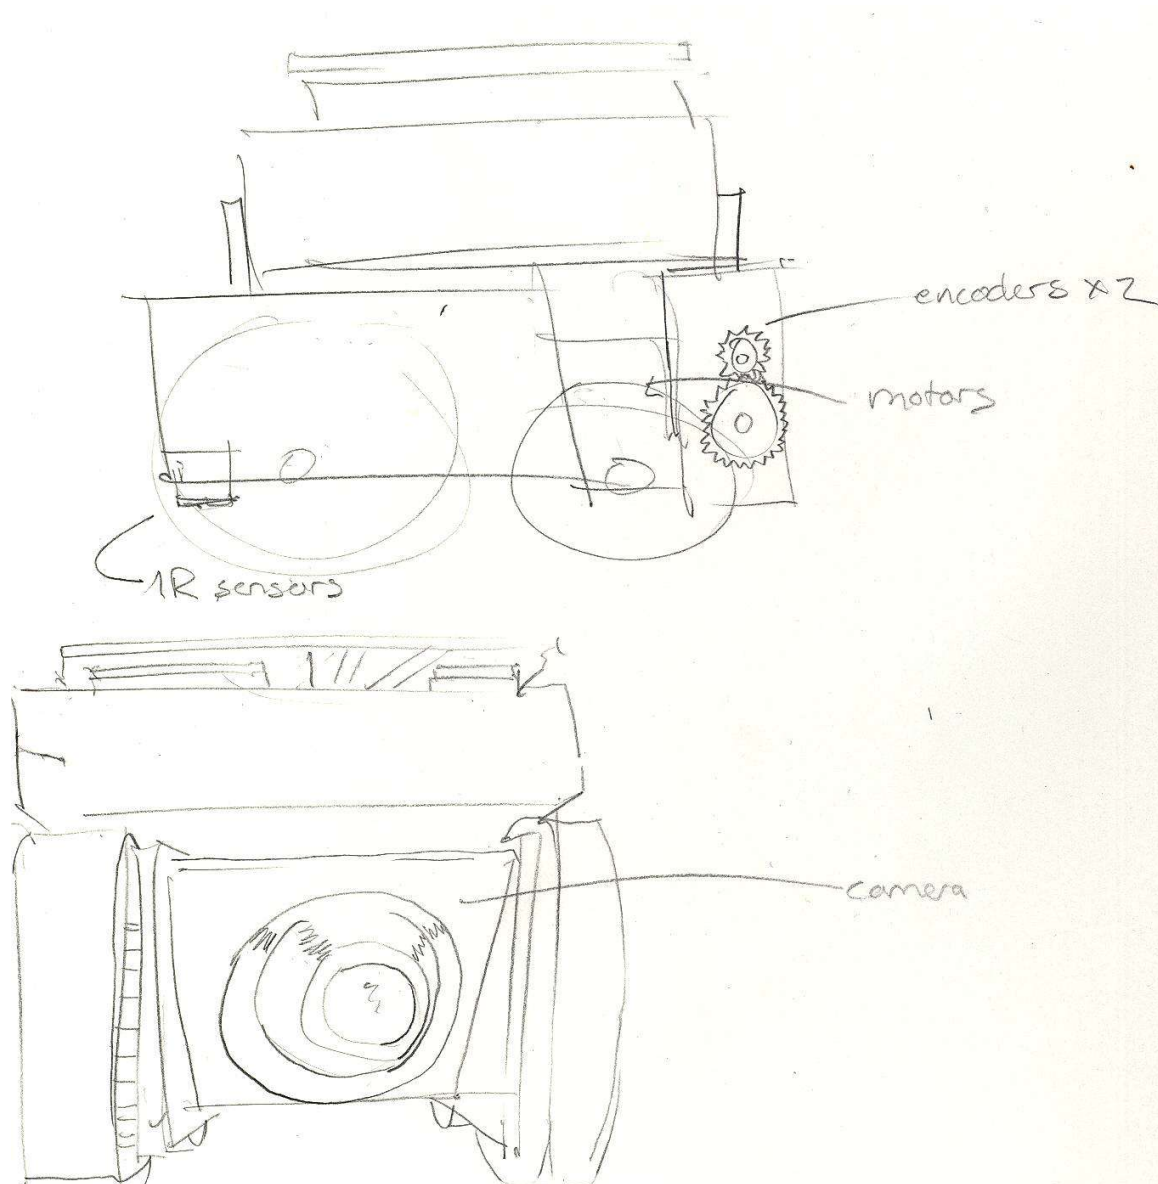 encoders x2
motors
IR sensors
camera